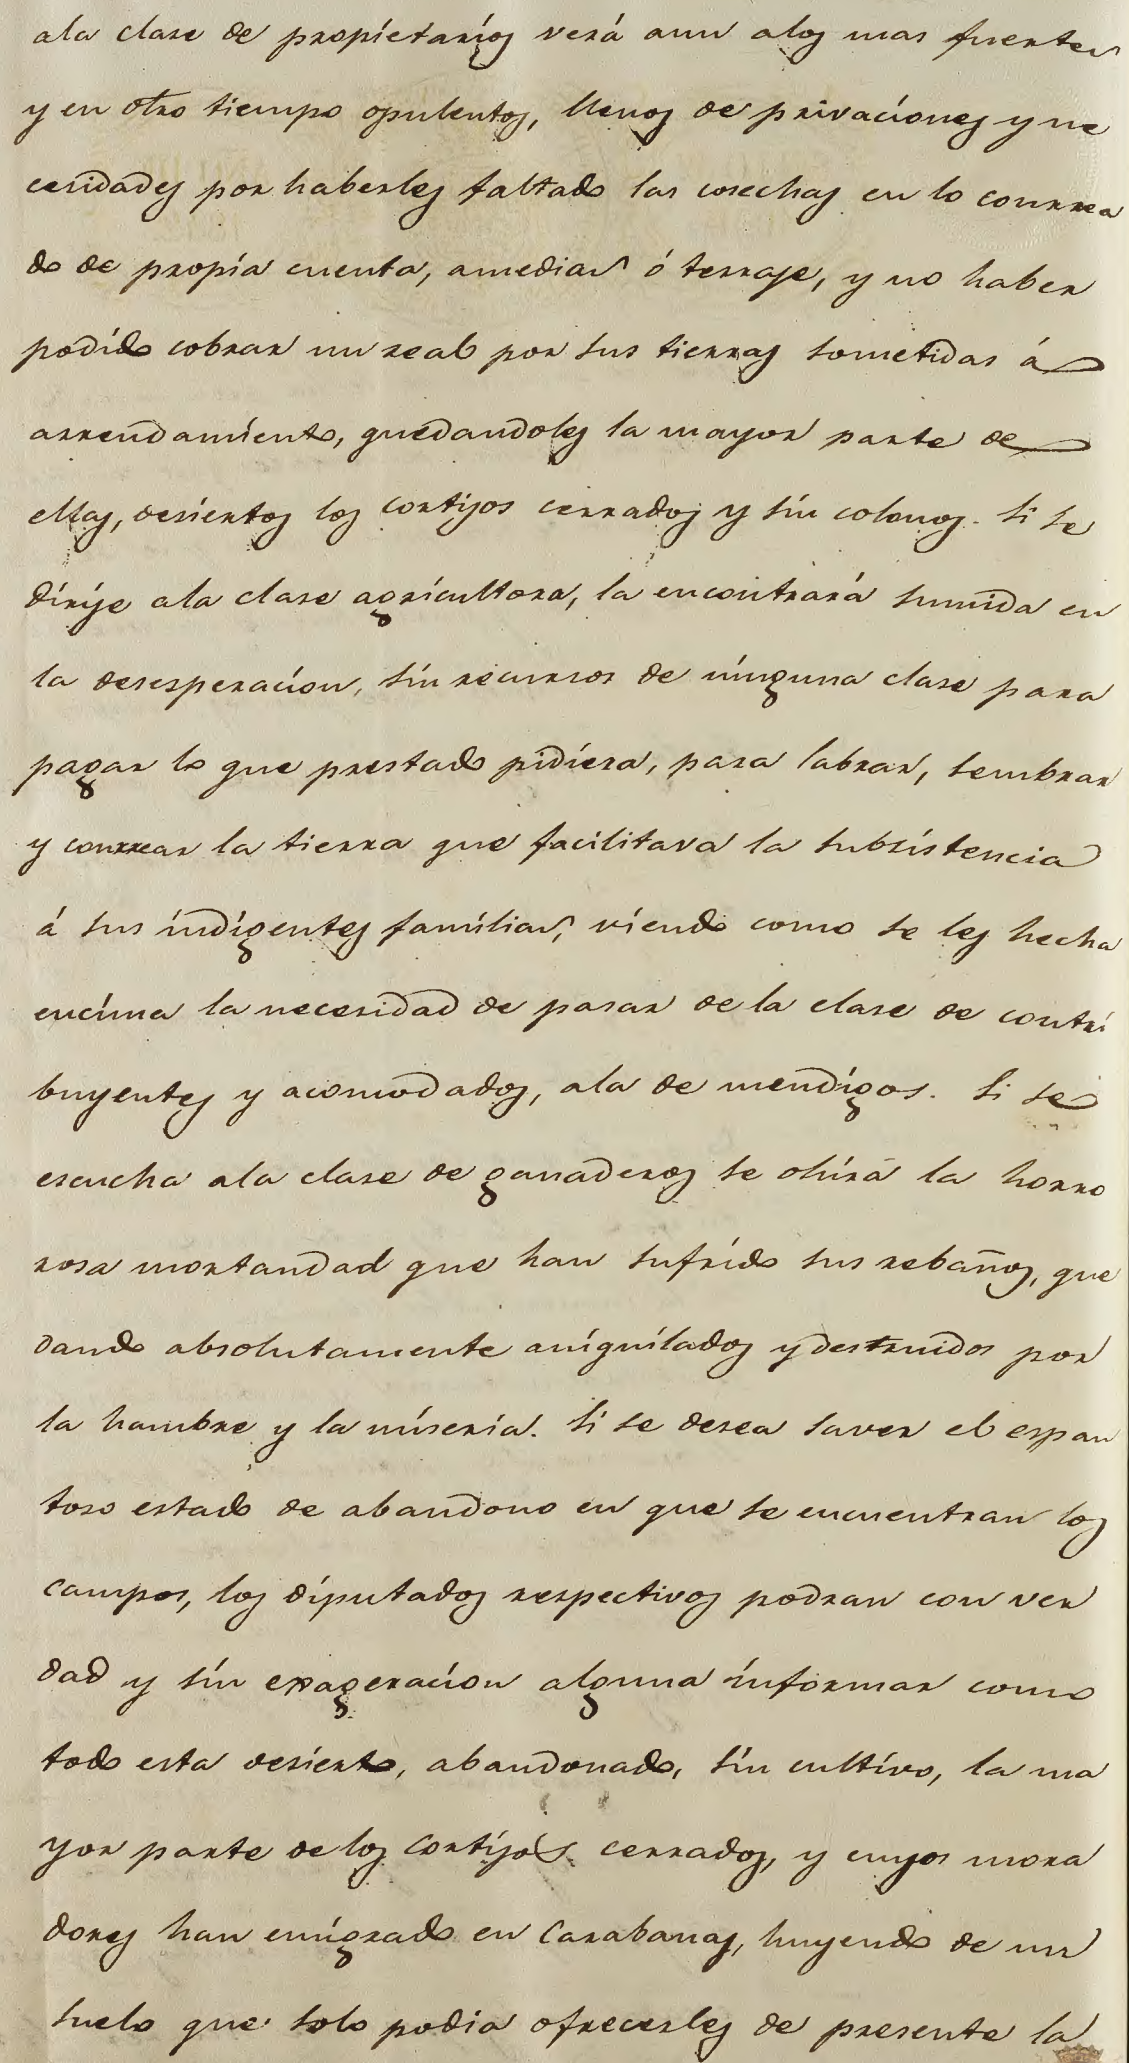 ala clase de propietarios verá aun alos mas fuertes
y en otro tiempo opulentos, llenos de privaciones y ne
cesidades por haberles faltado las cosechas en lo conrrea
do de propia cuenta, amedias ó terraje, y no haber
podido cobrar un real por sus tierras sometidas á
arrendamiento, quedandoles la mayor parte de
ellas, desiertos los cortijos cerrados y sin colonos. Si se
dirije ala clase agricultora, la encontrará sumida en
la desesperacion, sin recursos de ninguna clase para
pagar lo que prestado pidiera, para labrar, sembrar
y conrrear la tierra que facilitava la subsistencia
á sus indigentes familias, viendo como se les hecha
encima la necesidad de pasar de la clase de contri
buyentes y acomodados, ala de mendigos. Si se
escucha ala clase de ganaderos se ohirá la horro
rosa mortandad que han sufrido sus rebaños, que
dando absolutamente aniquilados y destruidos por
la hambre y la miseria. Si se desea saver el espan
toso estado de abandono en que se encuentran los
campos, los diputados respectivos podran con ver
dad y sin exageracion alguna informar como
todo esta desierto, abandonado, sin cultivo, la ma
yor parte de los cortijos cerrados, y cuyos mora
dores han emigrado en Carabanas, huyendo de un
suelo que solo podia ofrecerles de presente la